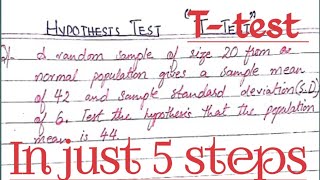 HYPOTHESIS TEST "T-TEST"
T-test
Q/- A random sample of size 20 from a
normal population gives a sample mean
of 42 and sample standard deviation (S.D)
of 6. Test the hypothesis that the population
mean is 44
In just 5 steps